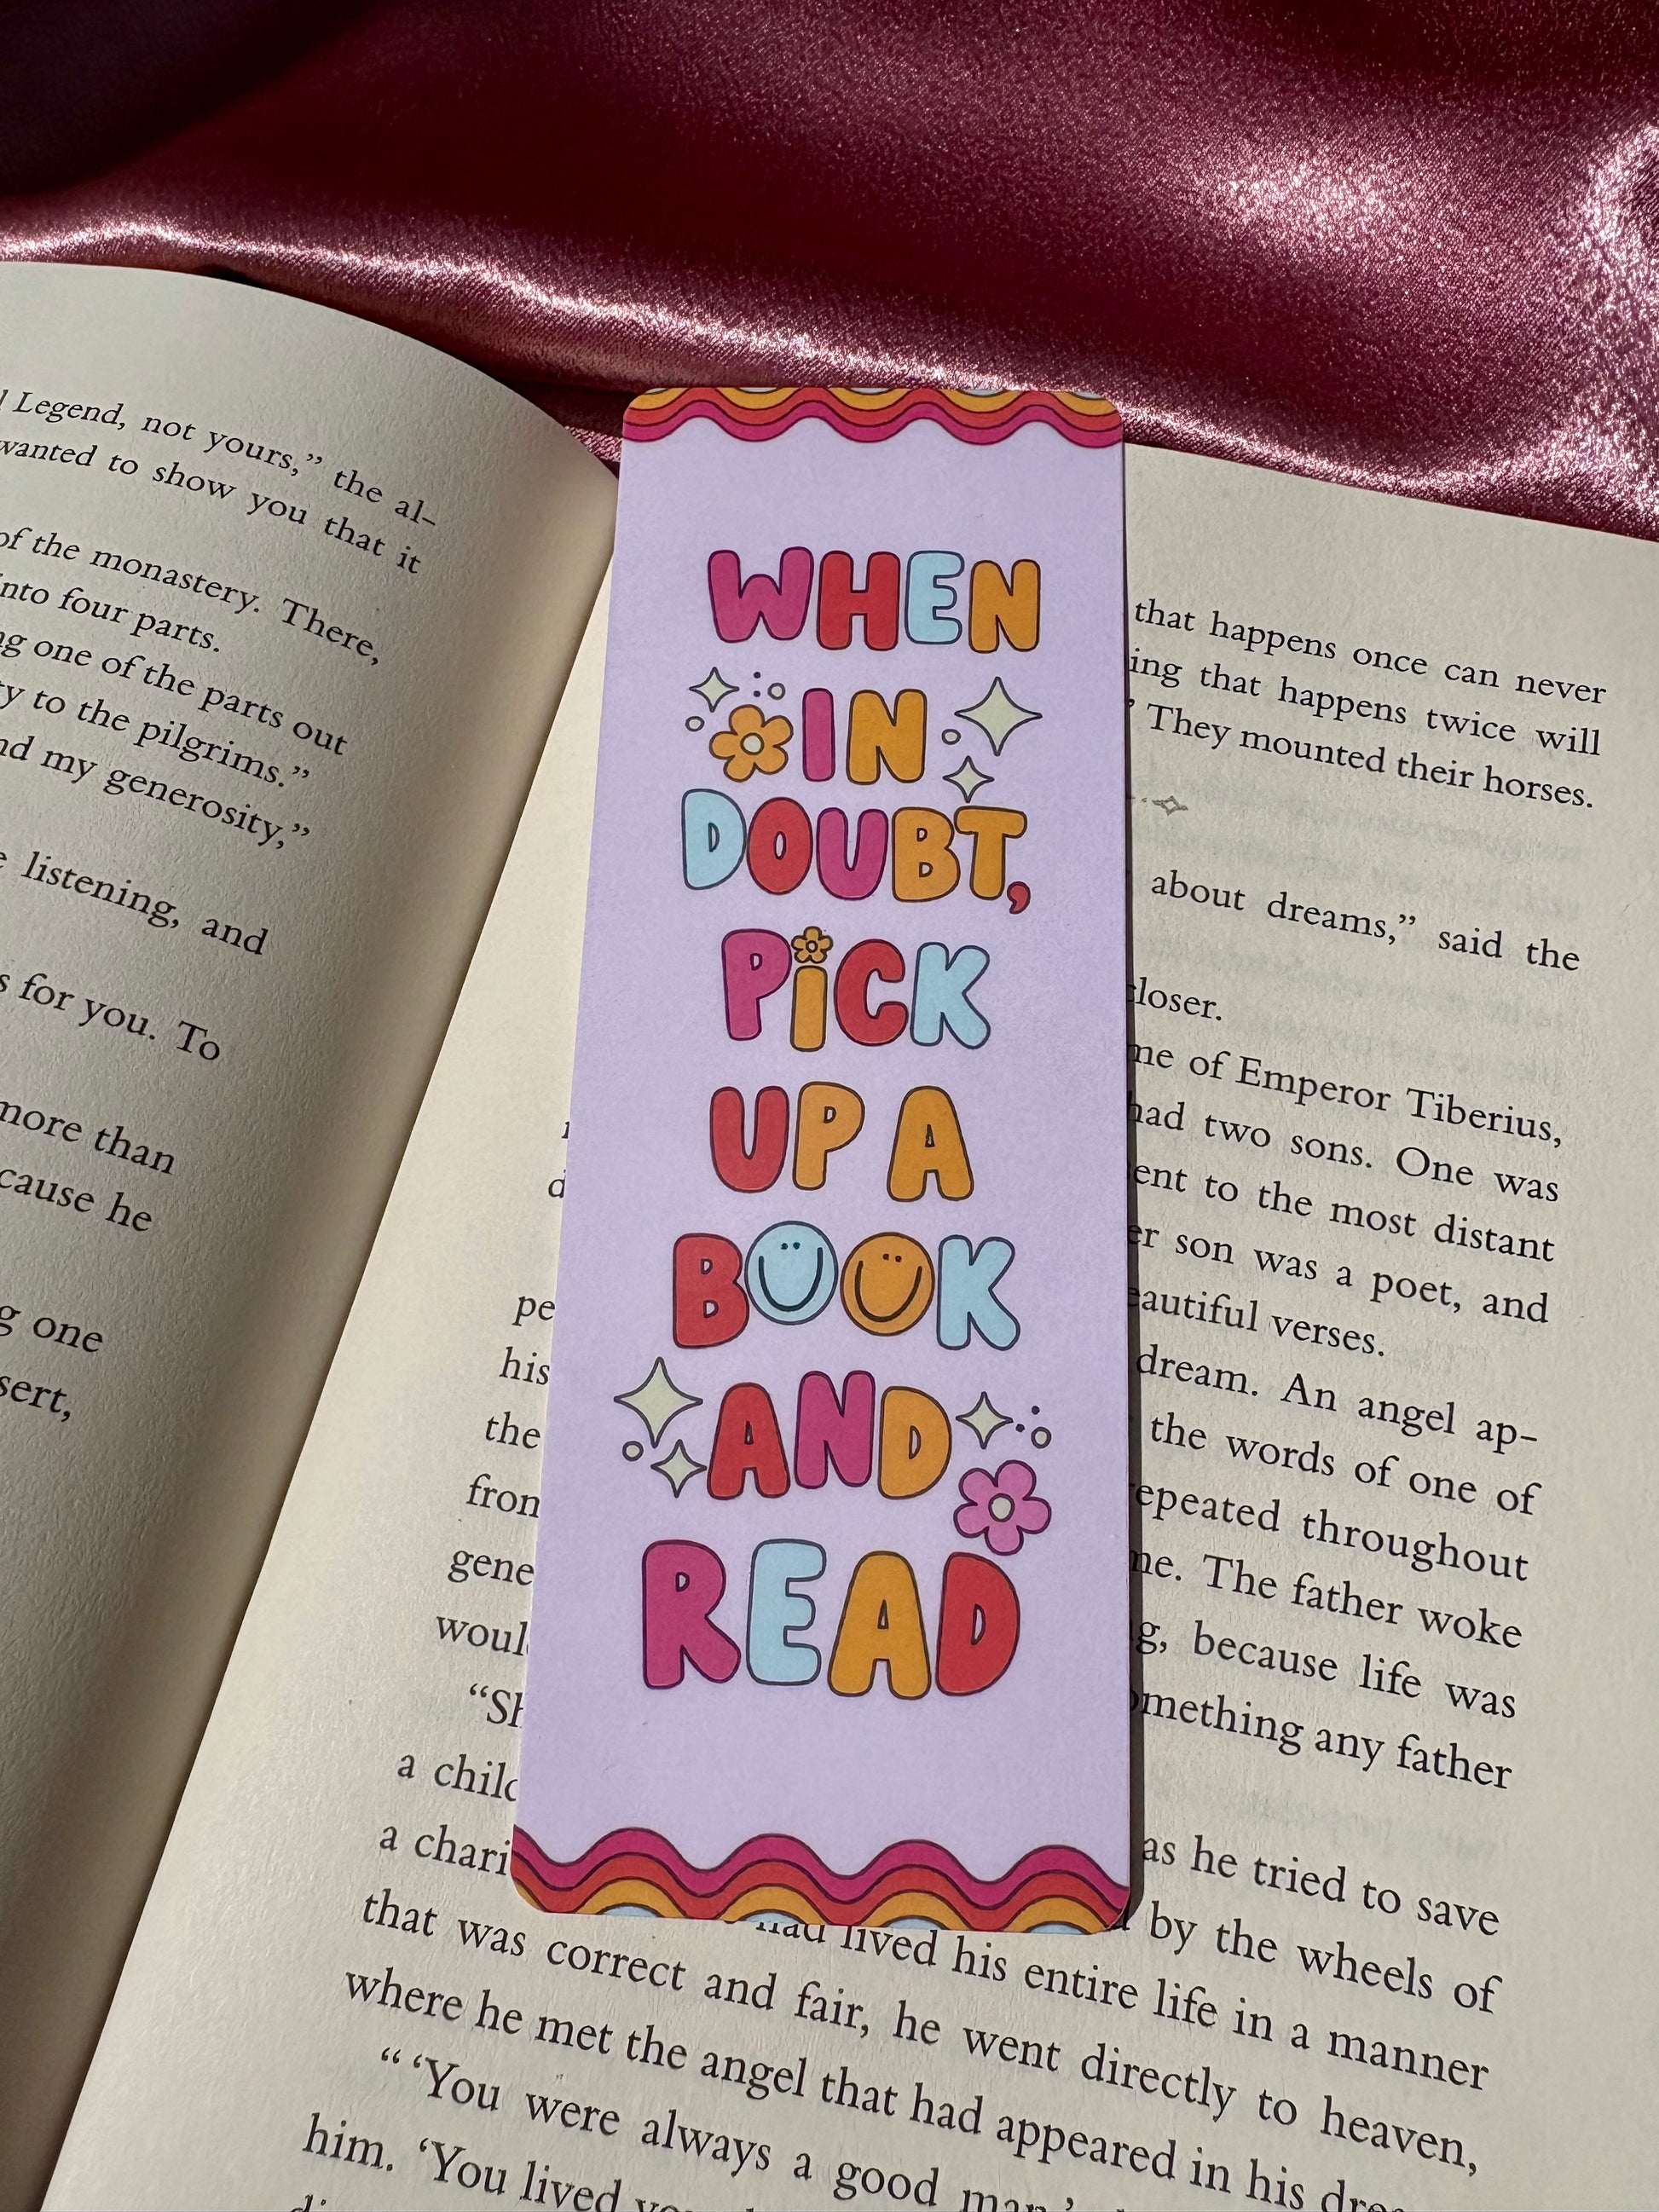 Legend, not yours,” the al-
wanted to show you that it
of the monastery. There,
into four parts.
one of the parts out
to the pilgrims.”
my generosity,”
listening, and
for you. To
more than
he
one
WHEN
IN
DOUBT,
PiCK
UP A
BOOK
AND
READ
that happens once can never
that happens twice will
They mounted their horses.
about dreams,” said the
closer.
of Emperor Tiberius,
had two sons. One was
to the most distant
son was a poet, and
beautiful verses.
dream. An angel ap-
his
the
the words of one of
repeated throughout
The father woke
because life was
something any father
a
as he tried to save
a
by the wheels of
had lived his entire life in a manner
that was correct and fair, he went directly to heaven,
where he met the angel that had appeared in his
“ ‘You were always a good man,’
him. ‘You lived